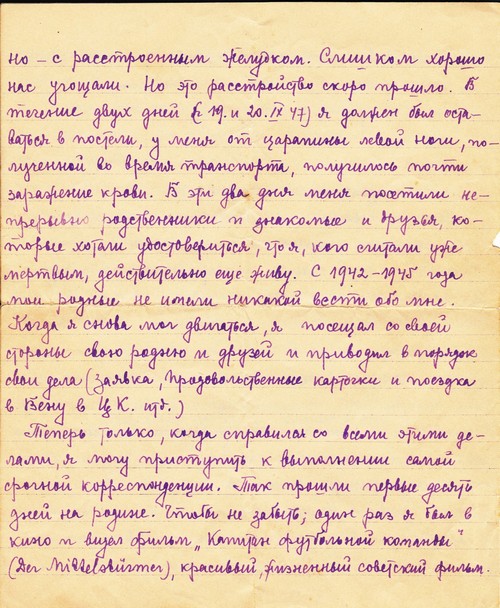 но – с расстроенным желудком. Слишком хорошо
нас угощали. Но это расстройство скоро прошло. В
течение двух дней (19. и 20. IX 47) я должен был оста-
ваться в постели, у меня от царапины левой ноги, по-
лученной во время транспорта, получилось почти
заражение крови. В эти два дня меня посетили не-
прерывно родственники и знакомые и друзья, ко-
торые хотали удостовериться, что я, кого считали уже
мёртвым, действительно ещё живу. С 1942–1945 года
мои родные не имели никакой вести обо мне.
Когда я снова мог двигаться, я посещал со своей
стороны свою родню и друзей и приводил в порядок
свои дела (заявка, продовольственные карточки и поездка
в Вену в Цк К. итд.)
Теперь только, когда справился со всеми этими де-
лами, я могу приступить к выполнении самой
срочной корреспонденции. Так прошли первые десять
дней на родине. Чтобы не забыть; один раз я был в
кино и видел фильм „Капитан футбольной команды“
(Der Mittelstürmer), красивый, жизненный советский фильм.